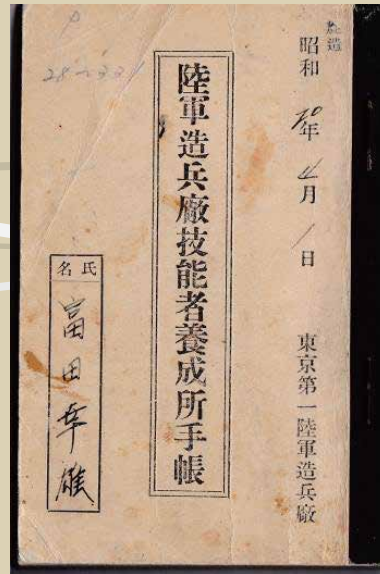 昭和20年4月1日 東京第一陸軍造兵廠
陸軍造兵廠技能者養成所手帳
氏名
富田幸雄
28-233